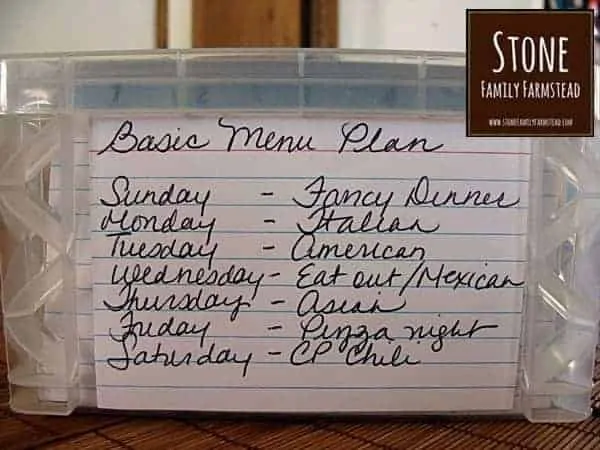 STONE
FAMILY FARMSTEAD
WWW.STONEFAMILYFARMSTEAD.COM
Basic Menu Plan
Sunday - Fancy Dinner
Monday - Italian
Tuesday - American
Wednesday - Eat out/Mexican
Thursday - Asian
Friday - Pizza night
Saturday - CP Chili